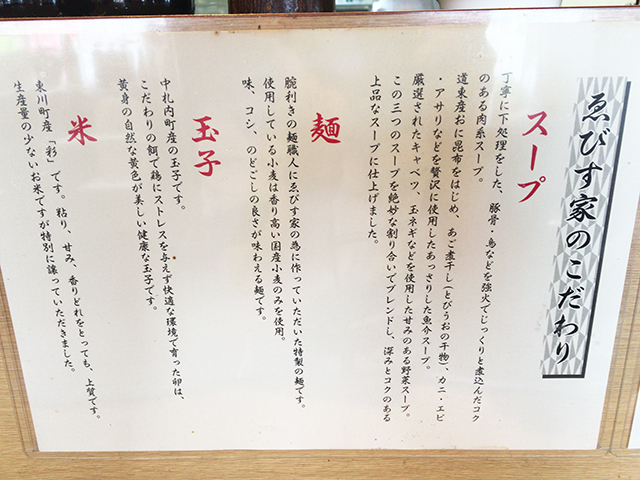 ゑびす家のこだわり
スープ
丁寧に下処理をした、豚骨・鳥などを強火でじっくりと煮込んだコク
のある肉系スープ。
道東産おに昆布をはじめ、あご煮干し(とびうおの干物)、カニ・エビ
・アサリなどを贅沢に使用したあっさりした魚介スープ。
厳選されたキャベツ、玉ネギなどを使用した甘みのある野菜スープ。
この三つのスープを絶妙な割り合いでブレンドし、深みとコクのある
上品なスープに仕上げました。
麺
腕利きの麺職人にゑびす家の為に作っていただいた特製の麺です。
使用している小麦は香り高い国産小麦のみを使用。
味、コシ、のどごしの良さが味わえる麺です。
玉子
中札内町産の玉子です。
こだわりの餌で鶏にストレスを与えず快適な環境で育った卵は、
黄身の自然な黄色が美しい健康な玉子です。
米
東川町産「彩」です。粘り、甘み、香りどれをとっても、上質です。
生産量の少ないお米ですが特別に譲っていただきました。